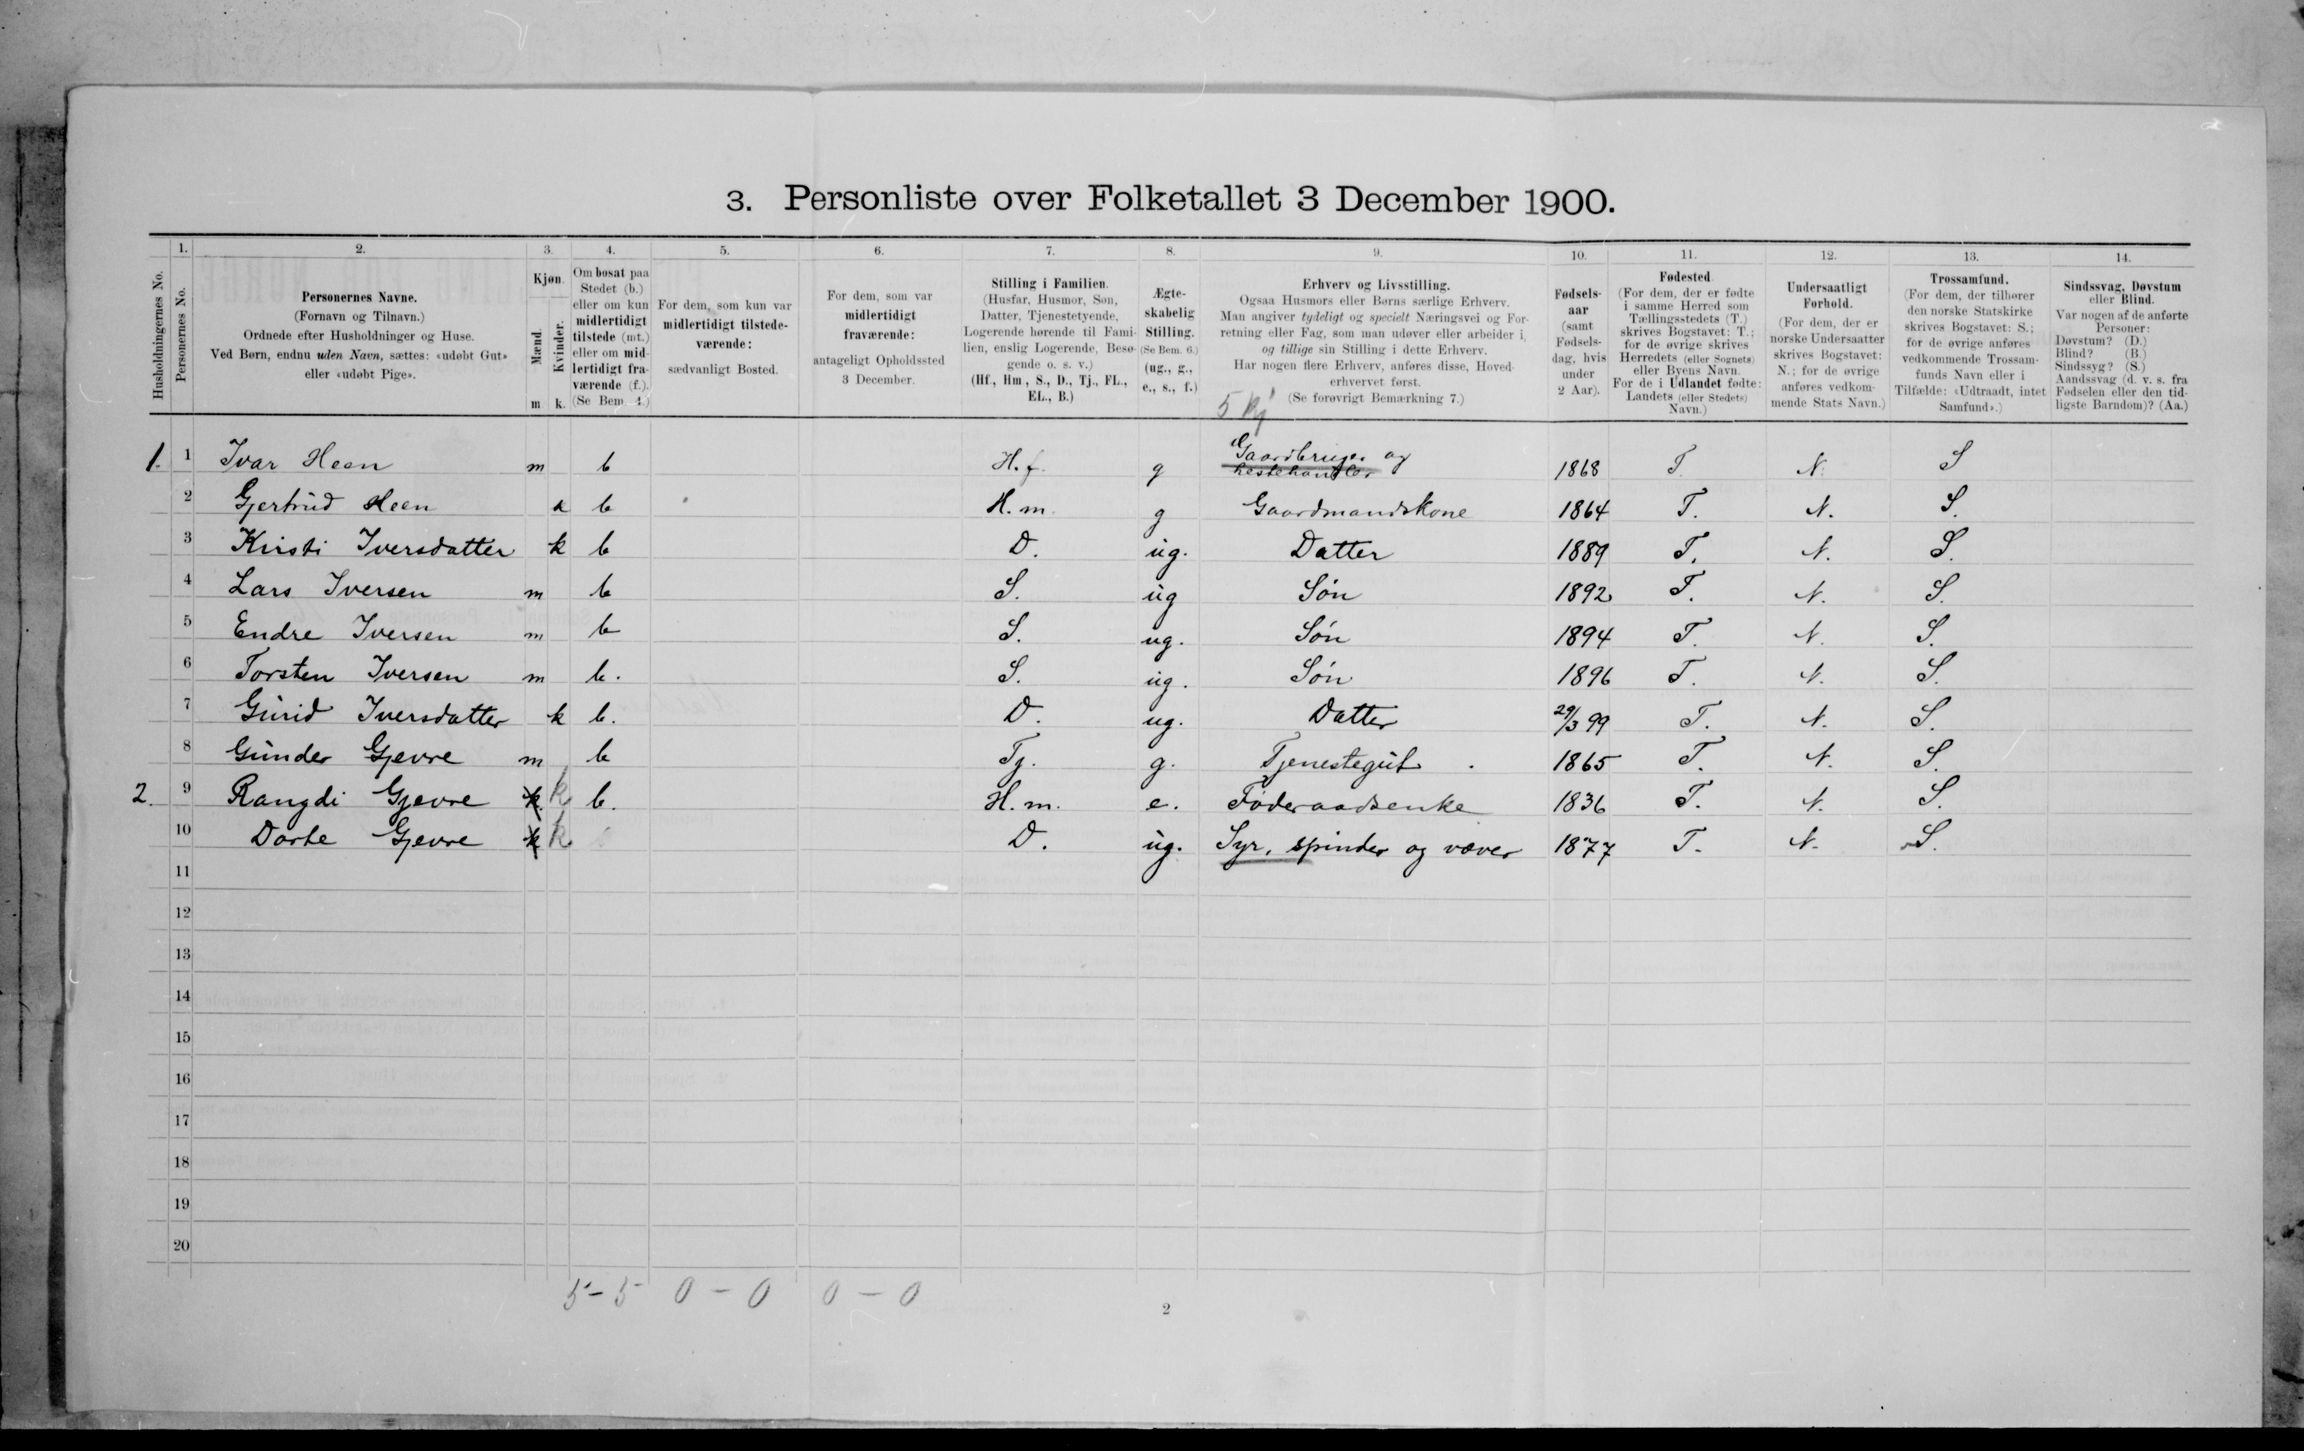 3. Personliste over Folketallet 3 December 1900.
Husholdningernes No.
1. Personernes No.
2. Personernes Navne.
(Fornavn og Tilnavn.)
Ordnede efter Husholdninger og Huse.
Ved Børn, endnu uden Navn, sættes: «udøbt Gut»
eller «udøbt Pige».
3. Kjøn.
Mænd. Kvinder.
m. k.
4. Om bosat paa
Stedet (b.)
eller om kun
midlertidigt
tilstede (mt.)
eller om mid-
lertidigt fra-
værende (f.).
(Se Bem. 4.)
5. For dem, som kun var
midlertidigt tilstede-
værende:
sædvanligt Bosted.
6. For dem, som var
midlertidigt
fraværende:
antageligt Opholdssted
3 December.
7. Stilling i Familien.
(Husfar, Husmor, Søn,
Datter, Tjenestetyende,
Logerende hørende til Fami-
lien, enslig Logerende, Besø-
gende o. s. v.)
(Hf., Hm., S., D., Tj., FL.,
EL., B.)
8. Ægte-
skabelig
Stilling.
(Se Bem. 6.)
(ug., g.,
e., s., f.)
9. Erhverv og Livsstilling.
Ogsaa Husmors eller Børns særlige Erhverv.
Man angiver tydeligt og specielt Næringsvei og For-
retning eller Fag, som man udøver eller arbeider i,
og tillige sin Stilling i dette Erhverv.
Har nogen flere Erhverv, anføres disse, Hoved-
erhvervet først.
(Se forøvrigt Bemærkning 7.)
10. Fødsels-
aar
(samt
Fødsels-
dag, hvis
under
2 Aar).
11. Fødested
(For dem, der er fødte
i samme Herred som
Tællingsstedets (T.)
skrives Bogstavet: T.;
for de øvrige skrives
Herredets (eller Sognets)
eller Byens Navn.
For de i Udlandet fødte:
Landets (eller Stedets)
Navn.)
12. Undersaatligt
Forhold.
(For dem, der er
norske Undersaatter
skrives Bogstavet:
N.; for de øvrige
anføres vedkom-
mende Stats Navn.)
13. Trossamfund.
(For dem, der tilhører
den norske Statskirke
skrives Bogstavet: S.;
for de øvrige anføres
vedkommende Trossam-
funds Navn eller i
Tilfælde: «Udtraadt, intet
Samfund».)
14. Sindssvag, Døvstum
eller Blind.
Var nogen af de anførte
Personer:
Døvstum? (D.)
Blind? (B.)
Sindssyg? (S.)
Aandssvag (d. v. s. fra
Fødselen eller den tid-
ligste Barndom)? (Aa.)
1. 1 Ivar Heen m b H.f. g Gaardbruger og hestehandler 1868 T. N. S
2 Gjertrud Heen k b H.m. g Gaardmandskone 1864 T. N. S.
3 Kirsti Iversdatter k b D. ug. Datter 1889 T. N. S.
4 Lars Iversen m b S. ug Søn 1892 T. N. S.
5 Endre Iversen m b S. ug. Søn 1894 T. N. S.
6 Torsten Iversen m b. S. ug. Søn 1896 T. N. S.
7 Gurid Iversdatter k b. D. ug. Datter 29/3 99 T. N. S.
8 Gunder Gjevre m b Tj. g. Tjenestegut 1865 T. N. S.
2. 9 Rangdi Gjevre k k b. H.m. e. Føderaadsenke 1836 T. N. S.
10 Dorte Gjevre k k D. ug. Syr, spinder og væver 1877 T. N. S.
11
12
13
14
15
16
17
18
19
20
5-5 0-0 0-0
2